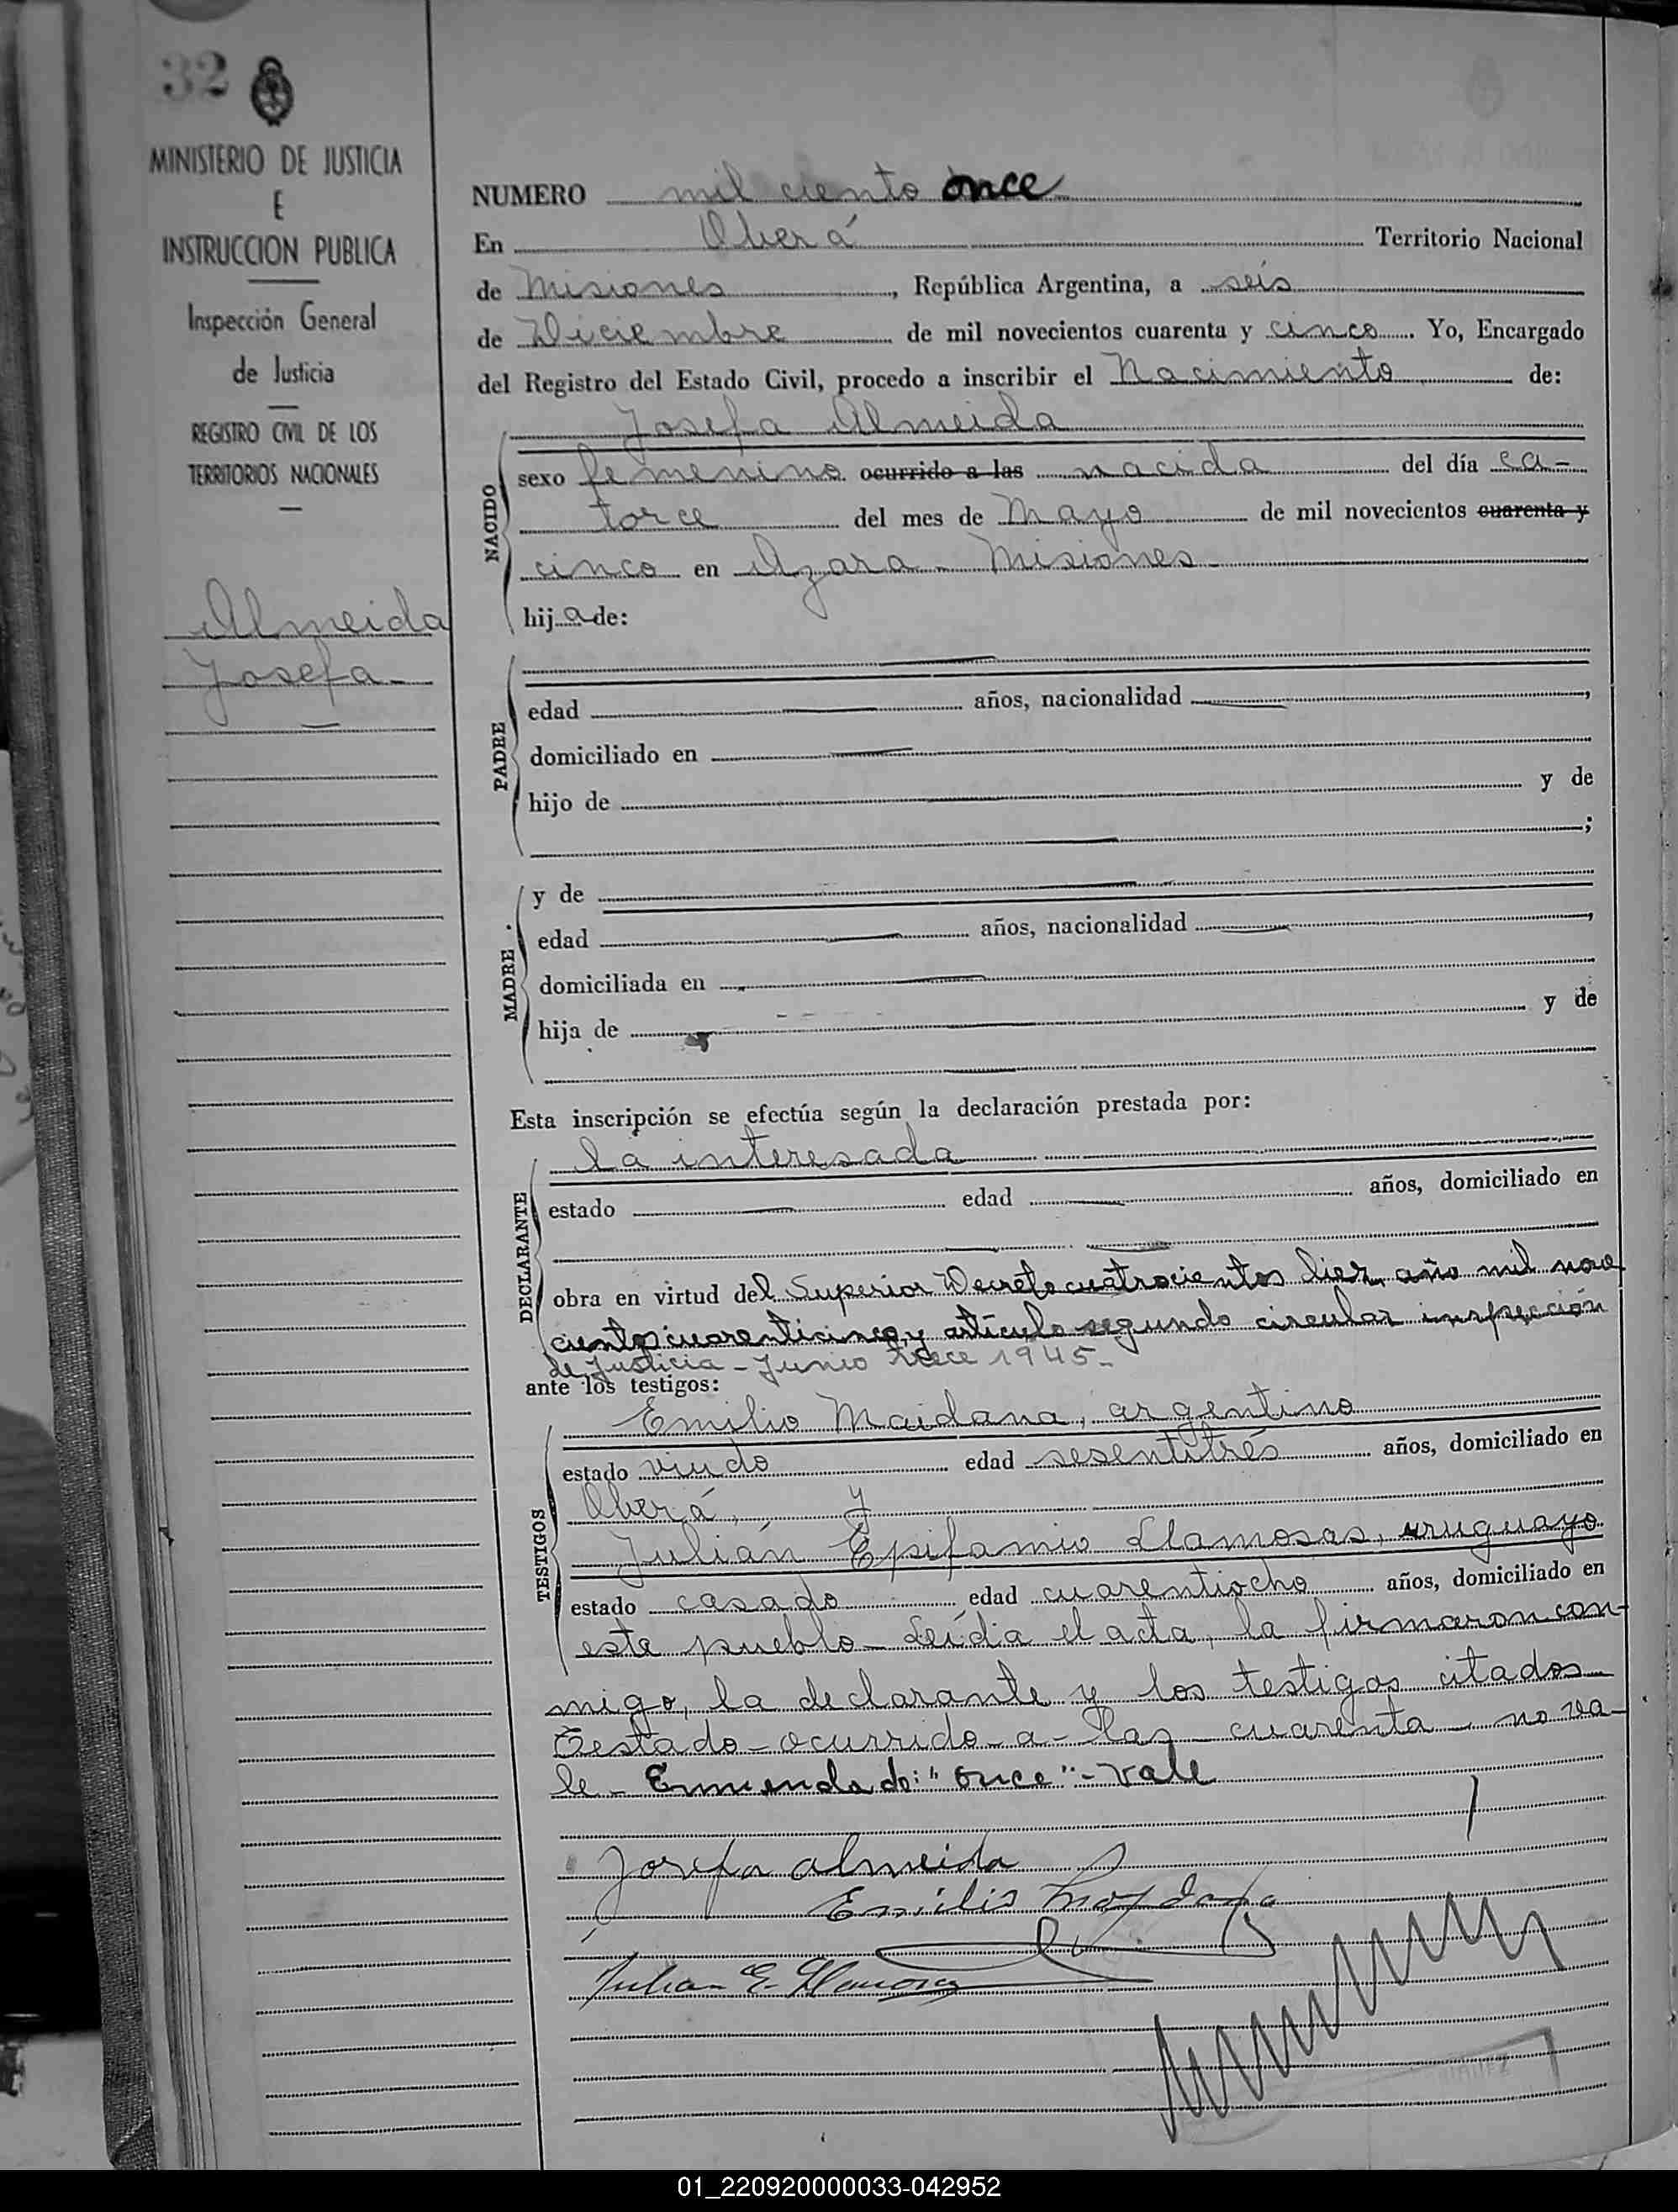 32
MINISTERIO DE JUSTICIA
E
INSTRUCCION PUBLICA
Inspección General
de Justicia
REGISTRO CIVIL DE LOS
TERRITORIOS NACIONALES
Almeida
Josefa
NUMERO mil ciento once
En Oberá Territorio Nacional
de Misiones, República Argentina, a seis
de Diciembre de mil novecientos cuarenta y cinco. Yo, Encargado
del Registro del Estado Civil, procedo a inscribir el Nacimiento de:
Josefa Almeida
NACIDO
sexo femenino ocurrido a las nacida del día ca-
torce del mes de Mayo de mil novecientos cuarenta y
cinco en Azara - Misiones
hija de:
PADRE
edad años, nacionalidad ,
domiciliado en
hijo de y de
;
MADRE
y de
edad años, nacionalidad ,
domiciliada en
hija de y de
Esta inscripción se efectúa según la declaración prestada por:
DECLARANTE
la interesada
estado edad años, domiciliado en
obra en virtud del Superior Decreto cuatrocientos diez año mil nove
cientos cuarenticinco y artículo segundo circular inspección
de Justicia - Junio trece 1945-
ante los testigos:
TESTIGOS
Emilio Maidana, argentino
estado viudo edad sesentitrés años, domiciliado en
Oberá, y
Julián Epifamio Llamosas, uruguayo
estado casado edad cuarentiocho años, domiciliado en
este pueblo - Leídia el acta, la firmaron con-
migo, la declarante y los testigos citados
Testado - ocurrido - a - las - cuarenta - no va-
le - Enmendado: "once" - Vale
Josefa Almeida
Emilio Maydana
Julian E. Llamosas
01_220920000033-042952